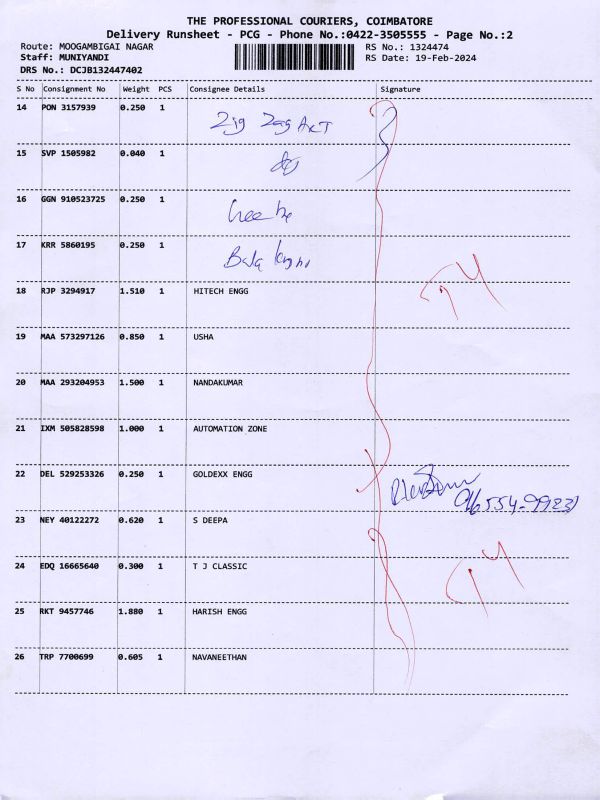 THE PROFESSIONAL COURIERS, COIMBATORE
Delivery Runsheet - PCG - Phone No.:0422-3505555 - Page No.:2
Route: MOOGAMBIGAI NAGAR RS No.: 1324474
Staff: MUNIYANDI RS Date: 19-Feb-2024
DRS No.: DCJB132447402
S No Consignment No Weight PCS Consignee Details Signature
14 PON 3157939 0.250 1 Zig Zag
15 SVP 1505982 0.040 1
16 GGN 910523725 0.250 1
17 KRR 5860195 0.250 1 Bala
18 RJP 3294917 1.510 1 HITECH ENGG
19 MAA 573297126 0.850 1 USHA
20 MAA 293204953 1.500 1 NANDAKUMAR
21 IXM 505828598 1.000 1 AUTOMATION ZONE
22 DEL 529253326 0.250 1 GOLDEXX ENGG
23 NEY 40122272 0.620 1 S DEEPA
24 EDQ 16665640 0.300 1 T J CLASSIC
25 RKT 9457746 1.880 1 HARISH ENGG
26 TRP 7700699 0.605 1 NAVANEETHAN